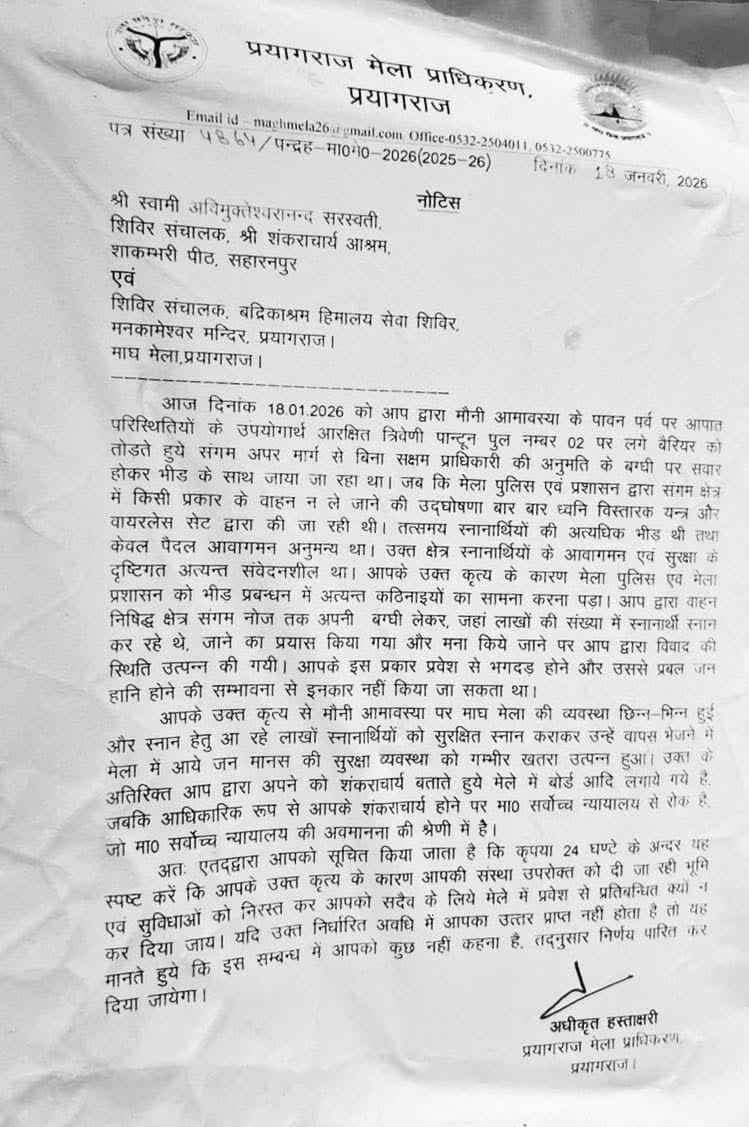 प्रयागराज मेला प्राधिकरण,
प्रयागराज
Email id – maghmela26@gmail.com, Office-0532-2504011, 0532-2500775
पत्र संख्या 4864/पन्द्रह-मा0मे0-2026(2025-26) दिनांक 18 जनवरी, 2026
नोटिस
श्री स्वामी अविमुक्तेश्वरानन्द सरस्वती,
शिविर संचालक, श्री शंकराचार्य आश्रम,
शाकम्भरी पीठ, सहारनपुर
एवं
शिविर संचालक, बद्रिकाश्रम हिमालय सेवा शिविर,
मनकामेश्वर मन्दिर, प्रयागराज।
माघ मेला,प्रयागराज।
आज दिनांक 18.01.2026 को आप द्वारा मौनी आमावस्या के पावन पर्व पर आपात
परिस्थितियों के उपयोगार्थ आरक्षित त्रिवेणी पान्टून पुल नम्बर 02 पर लगे बैरियर को
तोडते हुये संगम अपर मार्ग से बिना सक्षम प्राधिकारी की अनुमति के बग्घी पर सवार
होकर भीड के साथ जाया जा रहा था। जब कि मेला पुलिस एवं प्रशासन द्वारा संगम क्षेत्र
में किसी प्रकार के वाहन न ले जाने की उद्घोषणा बार बार ध्वनि विस्तारक यन्त्र और
वायरलेस सेट द्वारा की जा रही थी। तत्समय स्नानार्थियों की अत्यधिक भीड थी तथा
केवल पैदल आवागमन अनुमन्य था। उक्त क्षेत्र स्नानार्थियों के आवागमन एवं सुरक्षा के
दृष्टिगत अत्यन्त संवेदनशील था। आपके उक्त कृत्य के कारण मेला पुलिस एव मेला
प्रशासन को भीड प्रबन्धन में अत्यन्त कठिनाइयों का सामना करना पड़ा। आप द्वारा वाहन
निषिद्ध क्षेत्र संगम नोज तक अपनी बग्घी लेकर, जहां लाखों की संख्या में स्नानार्थी स्नान
कर रहे थे, जाने का प्रयास किया गया और मना किये जाने पर आप द्वारा विवाद की
स्थिति उत्पन्न की गयी। आपके इस प्रकार प्रवेश से भगदड़ होने और उससे प्रबल जन
हानि होने की सम्भावना से इनकार नहीं किया जा सकता था।
आपके उक्त कृत्य से मौनी आमावस्या पर माघ मेला की व्यवस्था छिन्न-भिन्न हुई
और स्नान हेतु आ रहे लाखों स्नानार्थियों को सुरक्षित स्नान कराकर उन्हें वापस भेजने में
मेला में आये जन मानस की सुरक्षा व्यवस्था को गम्भीर खतरा उत्पन्न हुआ। उक्त के
अतिरिक्त आप द्वारा अपने को शंकराचार्य बताते हुये मेले में बोर्ड आदि लगाये गये है,
जबकि आधिकारिक रूप से आपके शंकराचार्य होने पर मा0 सर्वोच्च न्यायालय से रोक है,
जो मा0 सर्वोच्च न्यायालय की अवमानना की श्रेणी में है।
अतः एतद्द्वारा आपको सूचित किया जाता है कि कृपया 24 घण्टे के अन्दर यह
स्पष्ट करें कि आपके उक्त कृत्य के कारण आपकी संस्था उपरोक्त को दी जा रही भूमि
एवं सुविधाओं को निरस्त कर आपको सदैव के लिये मेले में प्रवेश से प्रतिबन्धित क्यों न
कर दिया जाय। यदि उक्त निर्धारित अवधि में आपका उत्तर प्राप्त नहीं होता है तो यह
मानते हुये कि इस सम्बन्ध में आपको कुछ नहीं कहना है, तद्नुसार निर्णय पारित कर
दिया जायेगा।
अधीकृत हस्ताक्षरी
प्रयागराज मेला प्राधिकरण,
प्रयागराज।